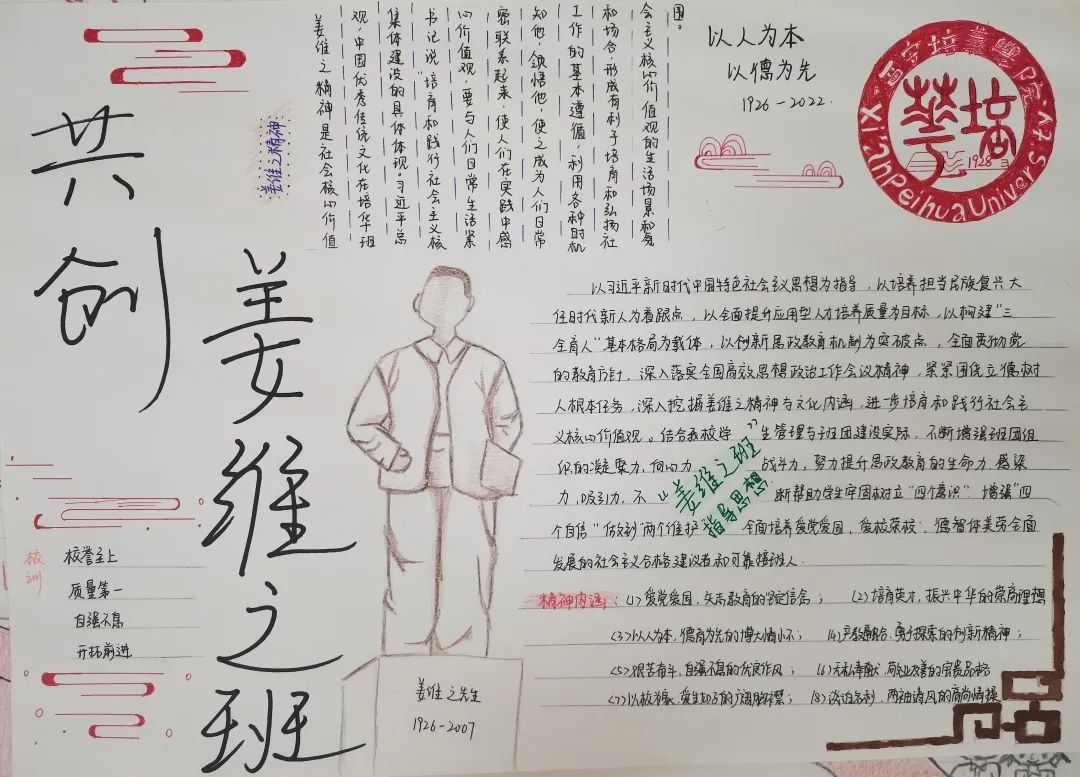 共创
姜维之班
姜维之精神
姜维之精神是社会核心价值
观,中国优秀传统文化在培华干班
集体建设的具体体现。习近平总
书记说“培育和践行社会主义核
心价值观,要与人们日常生活紧
密联系起来,使人们在实践中感
知他,领悟他,使之成为人们日常
工作的基本遵循,利用各种时机
和场合形成有利于培育和弘扬社
会主义核心价值观的生活场景和氛
围。
以人为本
以德为先
1926-2022.
西安培华学院
培华
1928
Xi'an Peihua University
以习近平新时代中国特色社会主义思想为指导,以培养担当民族复兴大
任时代新人为着眼点,以全面提升应用型人才培养质量为目标,以构建“三
全育人”基本格局为载体,以创新思政教育机制为突破点,全面贯彻党
的教育方针,深入落实全国高效思想政治工作会议精神,紧紧围绕立德树
人根本任务,深入挖掘姜维之精神与文化内涵,进步培育和践行社会主
义核心价值观。结合我校学生管理与班团建设实际,不断增强班团组
织的凝聚力、向心力战斗力,努力提升思政教育的生命力、感染
力,吸引力,不断帮助学生牢固树立“四个意识”增强“四
个自信”做到“两个维护全面培养爱党爱国,爱校荣校,德智体美劳全面
发展的社会主义合格建设者和可靠接班人.
“姜维之班”
指导思想
校训
校誉至上
质量第一
自强不息
开拓前进
姜维之先生
1926-2007
精神内涵:(1)爱党爱国,矢志教育的坚定信念;(2)培育英才,振兴中华的崇高理想
(3)以人为本,德育为先的博大情怀;(4)产教融合,勇于探索的创新精神;
(5)艰苦奋斗,自强不息的优良作风;(6)无私奉献,敬业友善的宝贵品格
(7)以校为家,爱生如子的广阔胸襟;(8)淡泊名利,两袖清风的高尚情操